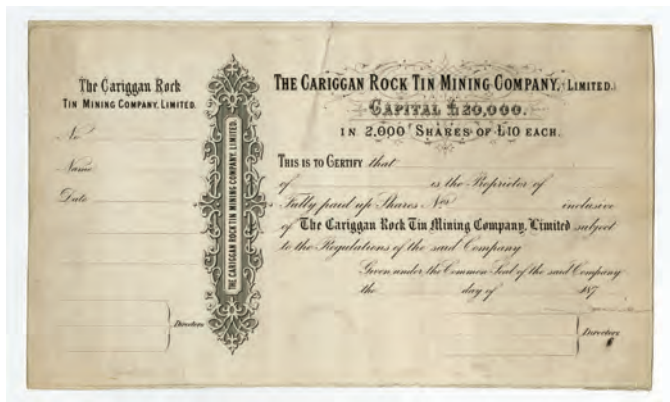 The Cariggan Rock
TIN MINING COMPANY, LIMITED.
No
Name
Date
Directors
THE CARIGGAN ROCK TIN MINING COMPANY, LIMITED.
THE CARIGGAN ROCK TIN MINING COMPANY, (LIMITED.)
CAPITAL £20,000.
IN 2,000 SHARES OF £10 EACH.
THIS IS TO CERTIFY that
of is the Proprietor of
Fully paid up Shares Nos inclusive
of The Cariggan Rock Tin Mining Company, Limited subject
to the Regulations of the said Company
Given under the Common Seal of the said Company
the day of 187
Directors